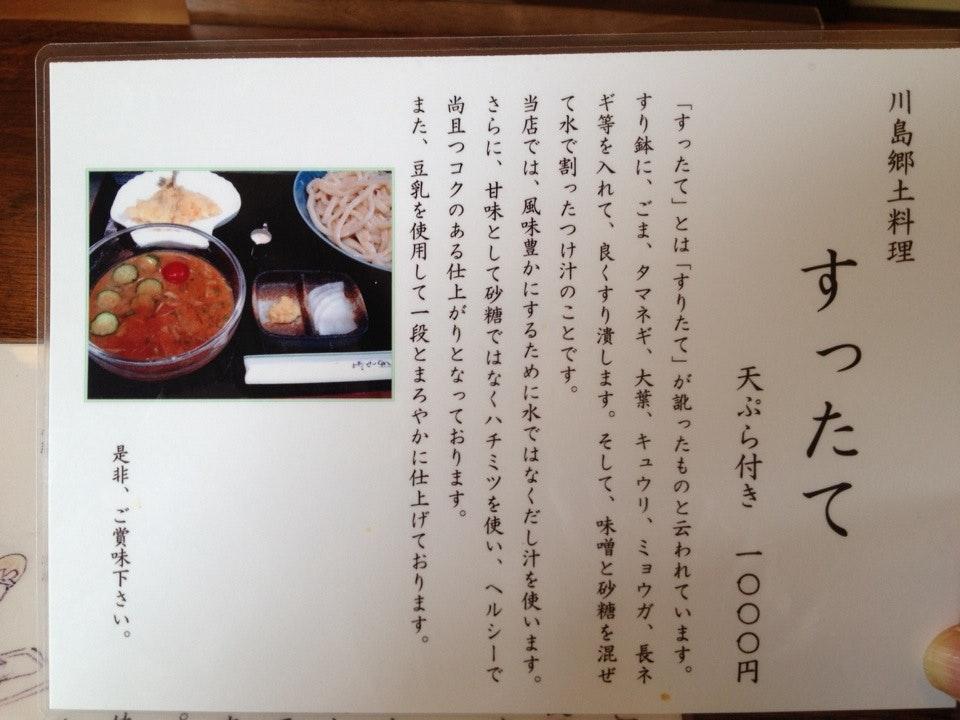 川島郷土料理
すったて
天ぷら付き 一〇〇〇円
「すったて」とは「すりたて」が訛ったものと云われています。
すり鉢に、ごま、タマネギ、大葉、キュウリ、ミョウガ、長ネ
ギ等を入れて、良くすり潰します。そして、味噌と砂糖を混ぜ
て水で割ったつけ汁のことです。
当店では、風味豊かにするために水ではなくだし汁を使います。
さらに、甘味として砂糖ではなくハチミツを使い、ヘルシーで
尚且つコクのある仕上がりとなっております。
また、豆乳を使用して一段とまろやかに仕上げております。
是非、ご賞味下さい。